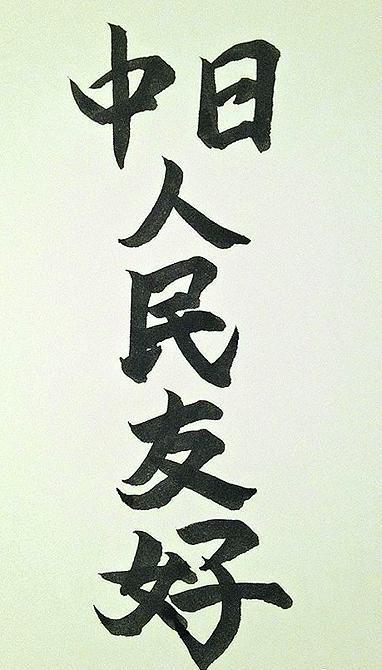 中日
人
民
友
好